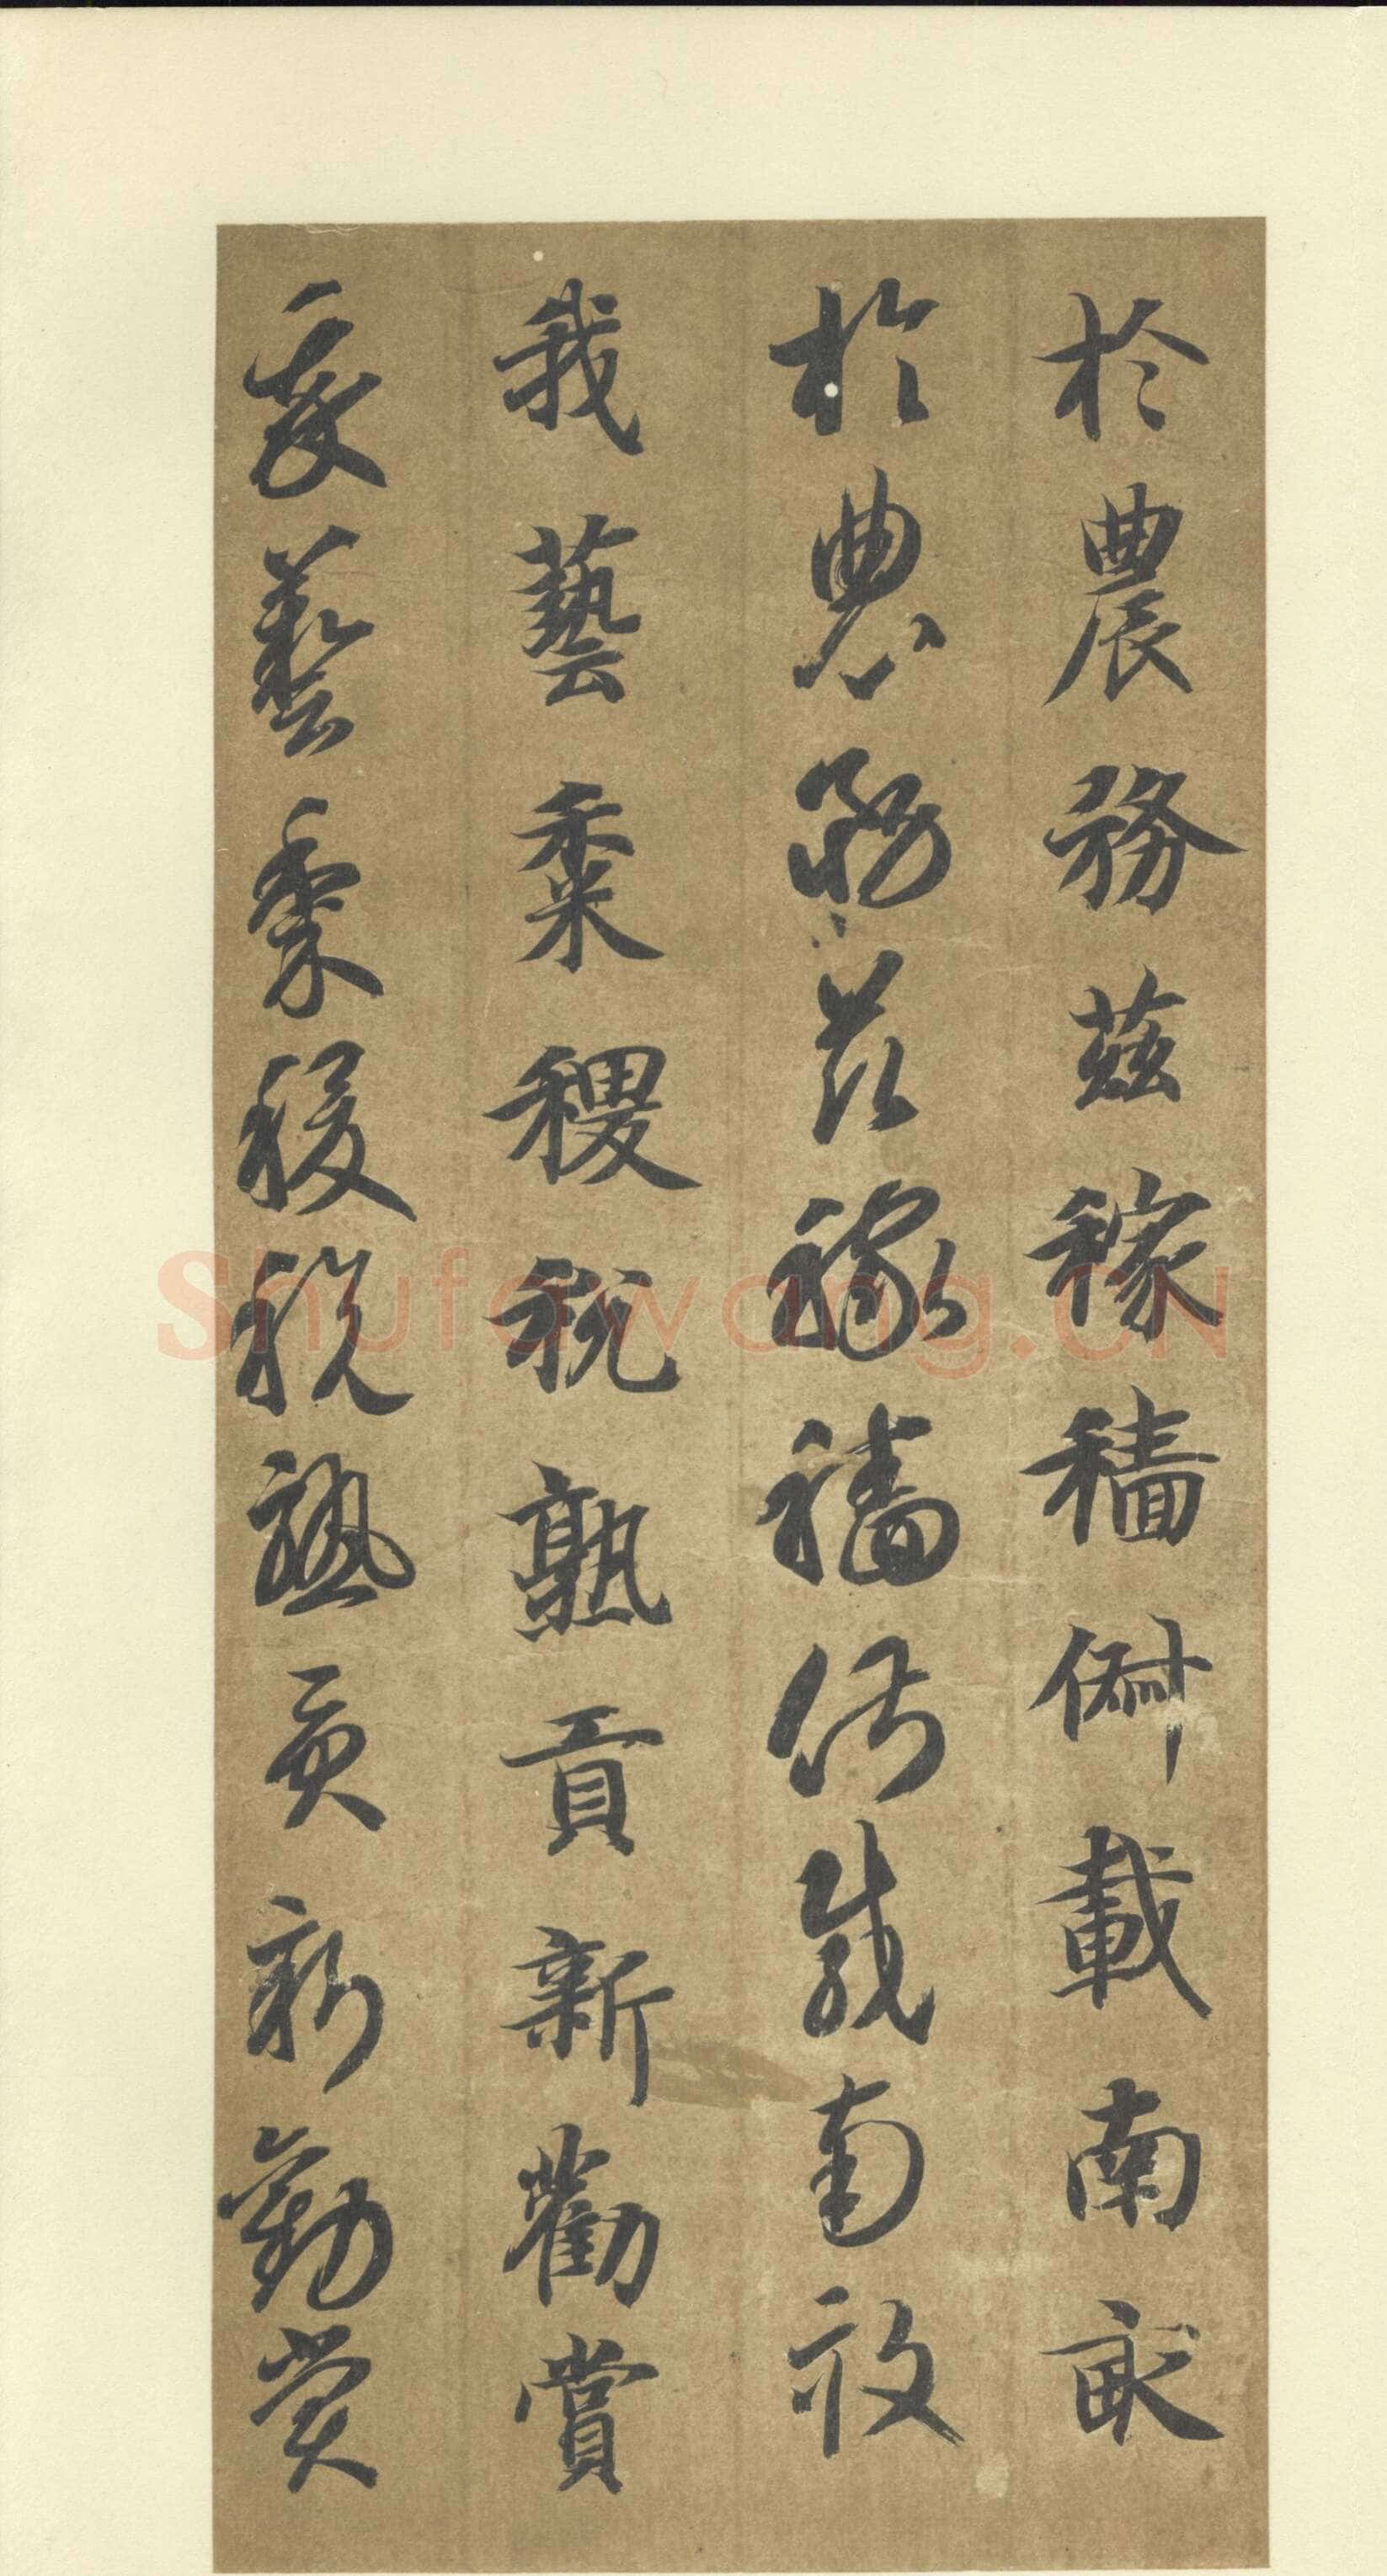 於農務茲稼穡俶載南畝
於農務茲稼穡俶載南畝
我藝黍稷稅熟貢新勸賞
我藝黍稷稅熟貢新勸賞
Shufawang.CN